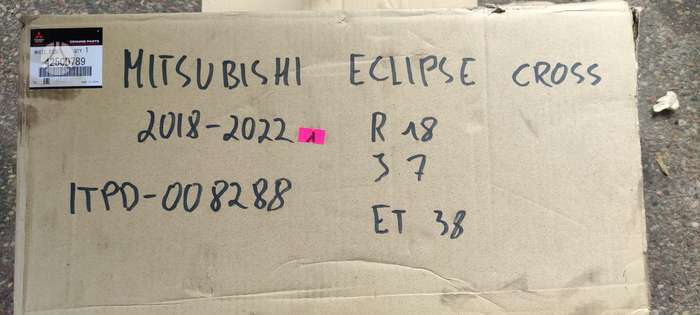 GENUINE PARTS
4250D789
MITSUBISHI ECLIPSE CROSS
2018-2022 1 R 18
J 7
ITPD-008288
ET 38